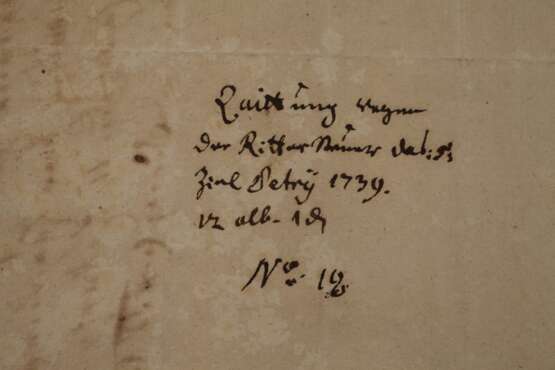 Quittung wegen
der Ritter Steuer
Ziel Petrÿ 1739.
12 alb. 1 d
No. 19